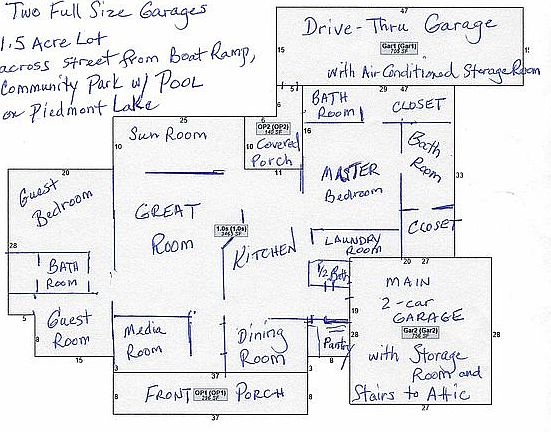 Two Full Size Garages
1.5 Acre Lot
across street from Boat Ramp,
Community Park w/ POOL
on Piedmont Lake
47
Drive-Thru Garage
15
Gar1 (Gar1)
with Air Conditioned Storage Room
5
29 47
BATH
Room
CLOSET
25
Sun Room
10
6
OP2 (OP2)
Covered
Porch
10
11
16
Bath
Room
33
MASTER
Bedroom
CLOSET
20
Guest
Bedroom
GREAT
Room
1.0s (1.0s)
KITCHEN
LAUNDRY
ROOM
28
BATH
ROOM
1/2 Bath
20 27
MAIN
2-car
GARAGE
Gar2 (Gar2)
with Storage
Room and
Stairs to Attic
19
28
28
27
5
Guest
Room
8
15
Media
Room
Dining
Room
Pantry
3
37
3
8
8
8
FRONT
OP1 (OP1)
PORCH
8
37